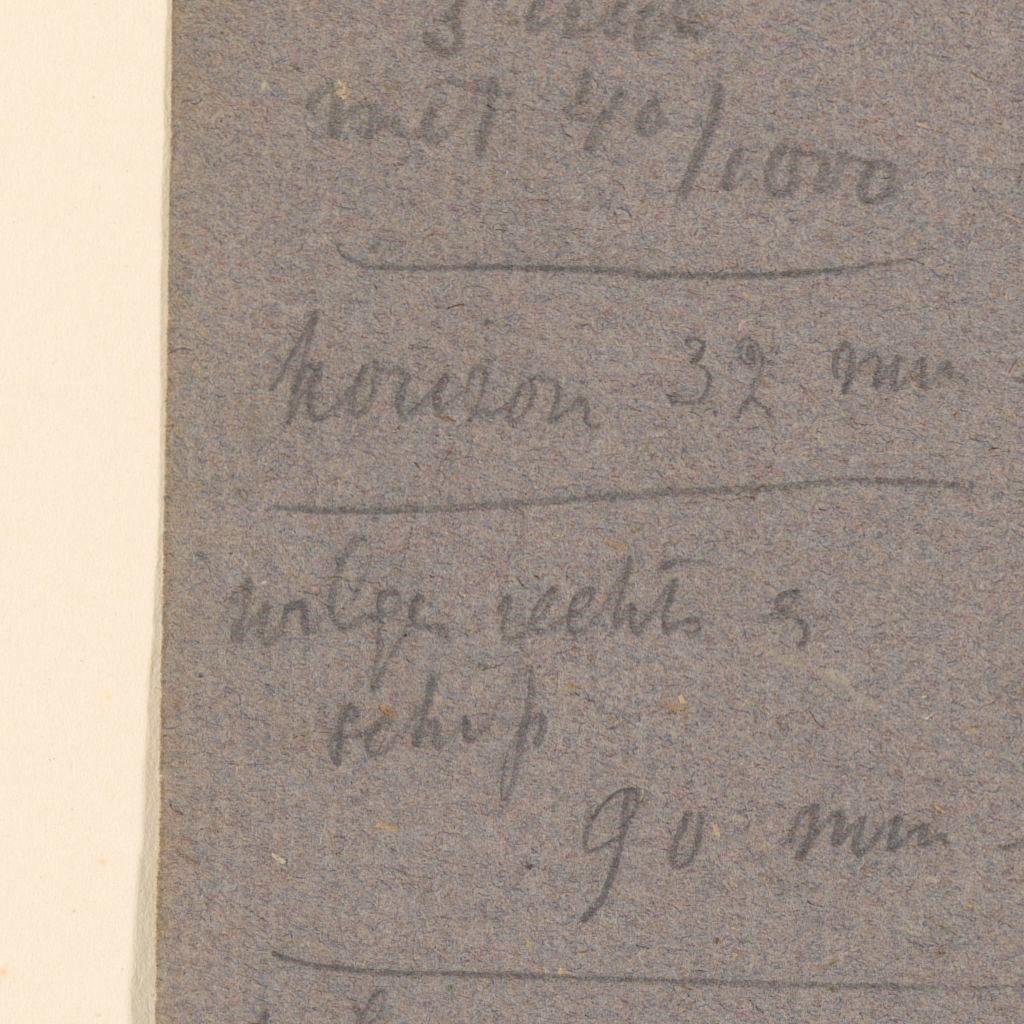 met 40/1000
horizon 32 mm
wilge rechts
schip
90 mm